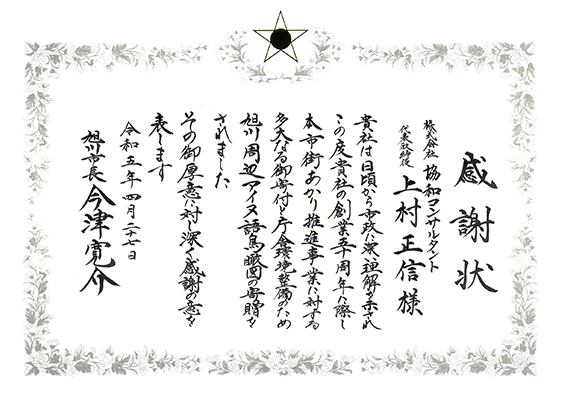 感謝状
株式会社 協和コンサルタント
代表取締役 上村正信 様
貴社は日頃から市政に深い理解を示され
この度貴社の創業五十周年に際し
本市街あかり推進事業に対する
多大なる御寄付と庁舎環境整備のため
旭川周辺アイヌ語鳥瞰図の寄贈を
されました
その御厚意に対し深く感謝の意を
表します
令和五年四月二十七日
旭川市長 今津寛介